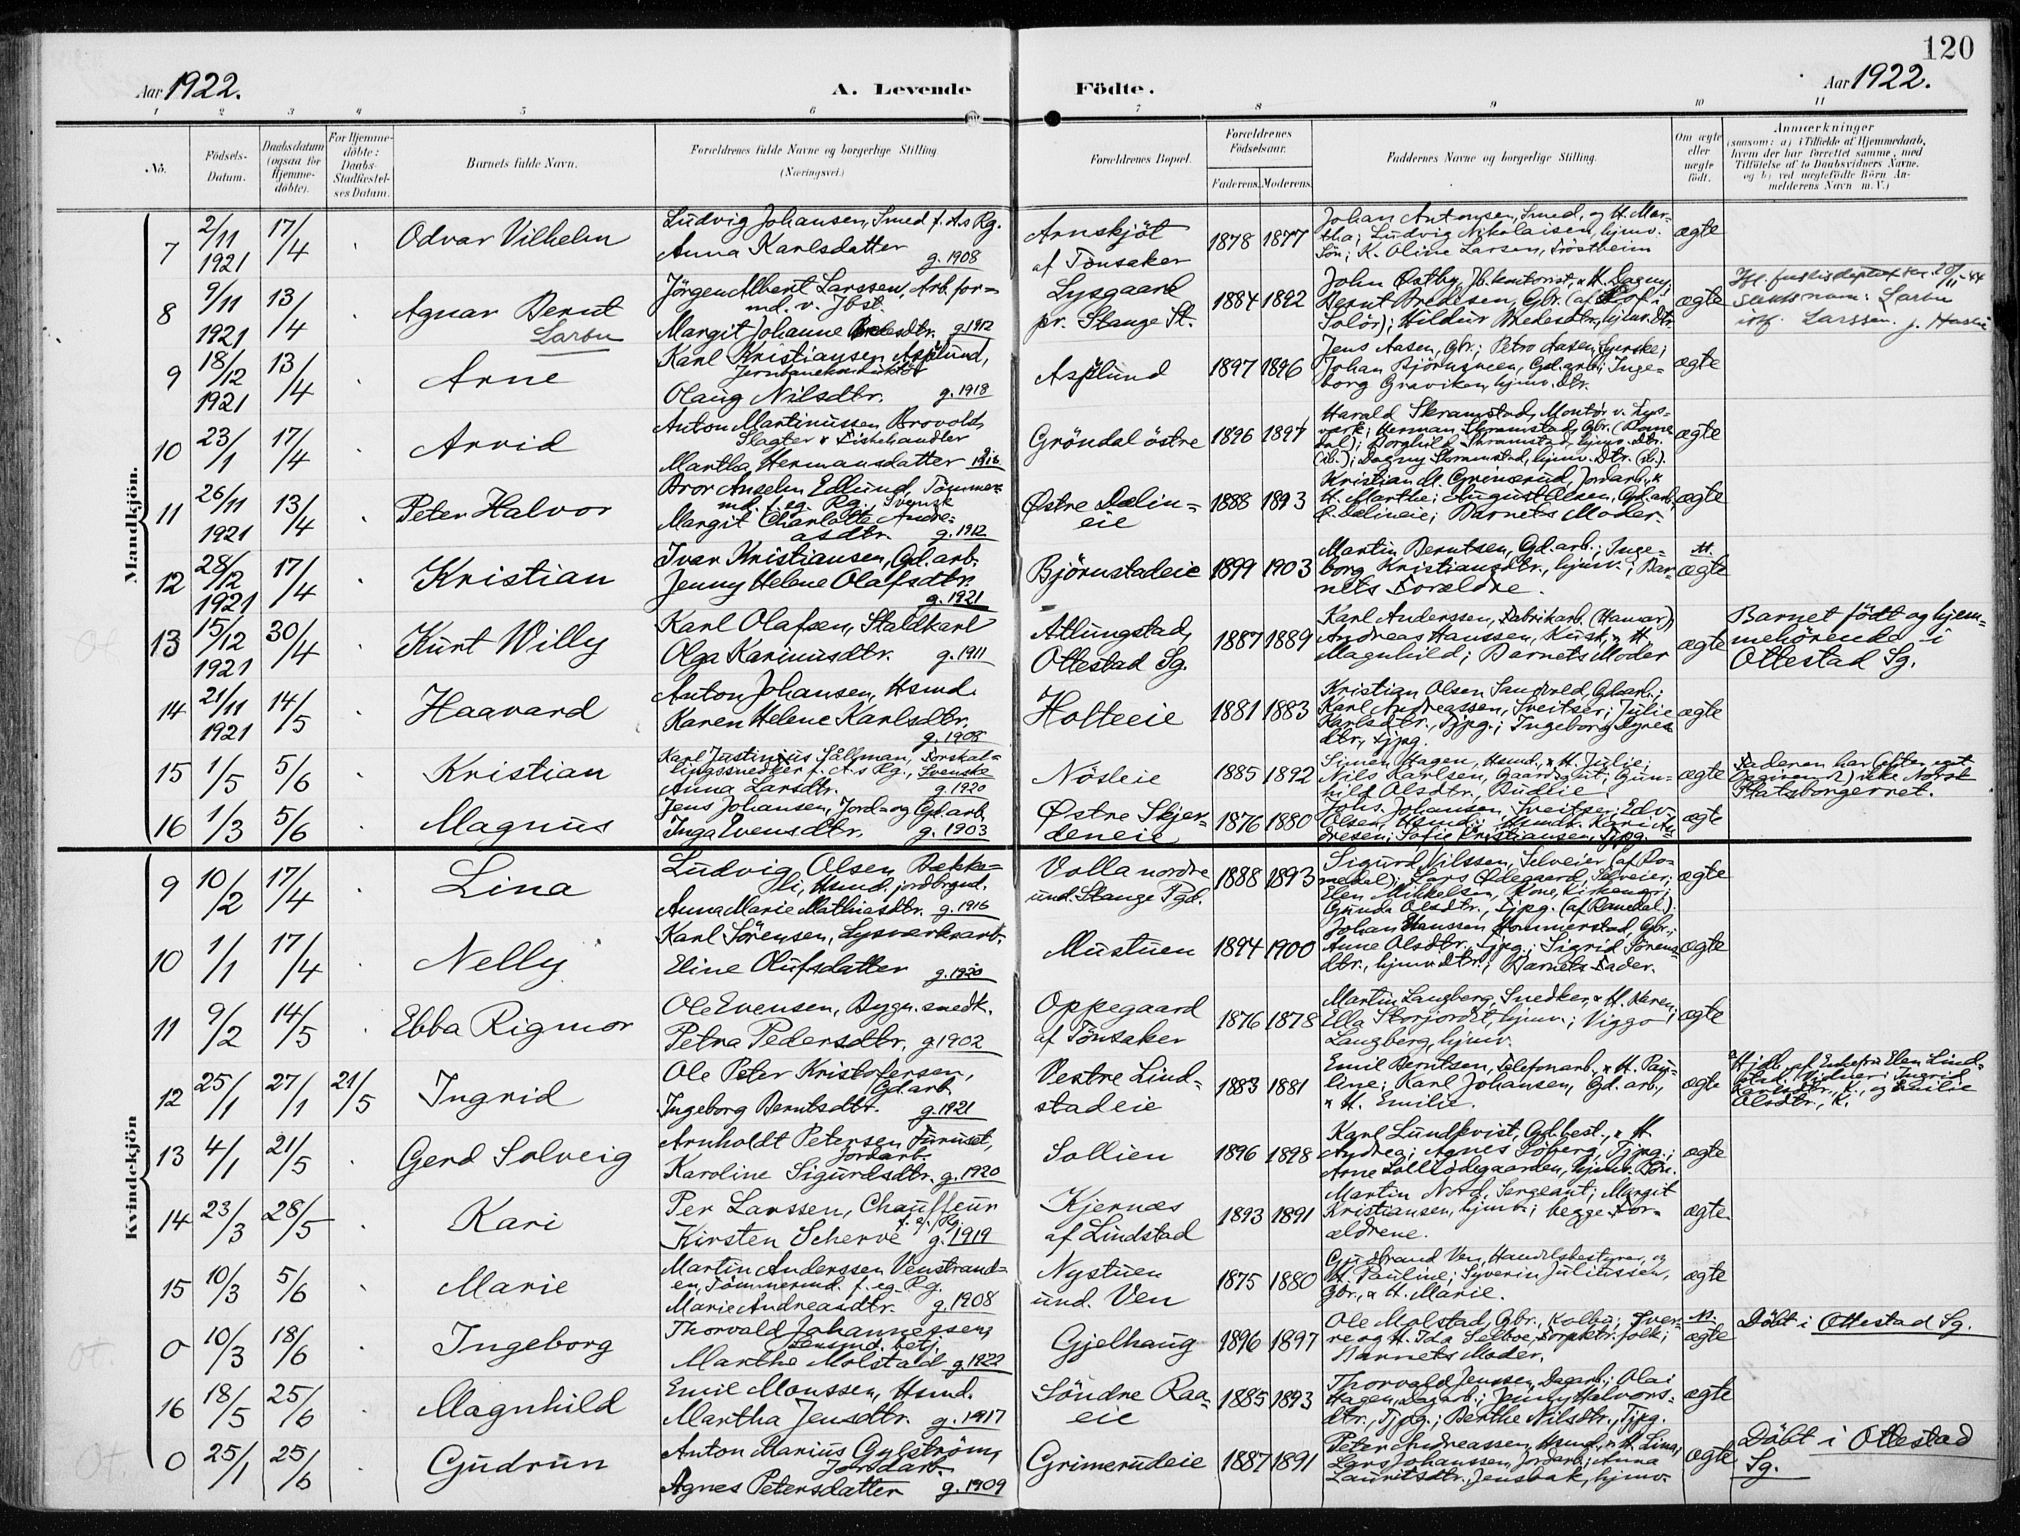 120
Aar 1922.
A. Levende
Födte.
Aar 1922.
1 2 3 4 5 6 7 8 9 10 11
No.
Födsels-Datum.
Daabsdatum (ogsaa for Hjemme-döbte).
For Hjemme-döbte: Daabs-Stadfæstel-ses Datum.
Barnets fulde Navn.
Forældrenes fulde Navne og borgerlige Stilling
(Næringsvei.)
Forældrenes Bopæl.
Forældrenes Födselsaar.
Faderens. Moderens.
Faddernes Navne og borgerlige Stilling.
Om ægte eller uægte födt.
Anmærkninger
(saasom: a) i Tilfælde af Hjemmedaab, hvem der har forrettet samme, med Tilföielse af to Daabsvidners Navne, og b) ved uægtefödte Börn An-melderens Navn m. V.)
Mandkjön.
7 2/11 1921 17/4 Odvar Vilhelm
Ludvig Johansen, Smed f. A.s Rg.
Anna Karlsdatter g. 1908
Arnskjöt af Tönsaker 1878 1877
Johan Antonsen, Smed, og H. Mar-
tha; Ludvig Nikolaisen, hjmv.
Sön; K. Oline Larsen, Fröstheim
ægte
8 9/11 1921 13/4 Agnar Bernt
Larsen
Jörgen Albert Larssen, Arb.for-
md. v. Jbst.
Margit Johanne g. 1912
Lysgaard pr. Stange St. 1884 1892
John Østby, Jb.kontorist, & H. Dagny;
ægte
9 18/12 1921 13/4 Arne
Karl Kristiansen Asplund,
Jernbanekonduktör
Olaug Nilsdtr. g. 1918
Asplund 1897 1896
Jens Aasen, Gbr.; Petro Aasen,
Johan Gd.arb.; Inge-
borg Graviken, hjmv. dtr.
ægte
10 23/1 17/4 Arvid
Anton Martinussen Brovold,
Slagter & Fiskehandler
Martha Hermansdatter 1916
Gröndal östre 1896 1897
Harald Skramstad, Montör v. Lys-
værk; Herman Skramstad, Gbr. (Rome-
dal); Borghild Skramstad, hjmv. Dtr.
(ib.); Dagny Skramstad, hjmv. Dtr. (ib.).
ægte
11 26/11 1921 13/4 Peter Halvor
Bror Anselm Edlund, Tömmer-
md. f. eg. Rg., Svensk
Margit Charlotte Andre-
asdtr. g. 1912
Østre Dælin-
eie 1888 1893
Kristian M. Grinerud, Jordarb., &
H. Marthe; August Olsen, Gd.arb.,
Ö. Dælineie; Barnets Moder.
ægte
12 28/12 1921 17/4 Kristian
Ivar Kristiansen, Gd.arb.
Jenny Helene Olafsdtr.
g. 1921
Björnstadeie 1899 1903
Martin Berntsen, Gd.arb.; Inge-
borg Kristiansdtr., hjmv.; Bar-
nets Forældre.
ægte
13 15/12 1921 30/4 Kurt Willy
Karl Olafsen, Staldkarl
Olga Karinusdtr. g. 1911
Atlungstad, Ottestad Sg. 1887 1889
Karl Anderssen, Fabrikarb. (Hamar)
Andreas Hanssen, Kusk, & H.
Magnhild; Barnets Moder
ægte
Barnet födt og hjem-
mehörende i
Ottestad Sg.
14 21/11 1921 14/5 Haavard
Anton Johansen, Hsmd.
Karen Helene Karlsdtr.
g. 1908
Holteeie 1881 1883
Kristian Olsen Sandvold, Gd.arb.;
Karl Andreassen, Sveitser; Julie
Karlsdtr., Tjpg.; Ingeborg
dtr., Tjpg.
ægte
15 1/5 5/6 Kristian
Karl Justinius Sällman, Forskal-
lingssnedker f. A.s Rg., Svenske
Anna Larsdtr. g. 1920
Nösleie 1885 1892
Simen Hagen, Hsmd., & H. Julie;
Nils Karlsen, Gaardsgut; Gun-
hild Olsdtr., Budeie.
ægte
Faderen har (efter eget
Opgivende) ikke Norsk
Statsborgerret.
16 1/3 5/6 Magnus
Jens Johansen, Jord- og Gd.arb.
Inga Evensdtr. g. 1903
Østre Skjer-
deneie 1876 1880
Johs. Johansen, Sveitser; Edv.
Olsen, Hsmd.; Hsmdk. Kari An-
dresen; Sofie Kristiansen, Tjpg.
ægte
Kvindekjön
9 10/2 17/4 Lina
Ludvig Olsen Bække-
li, Hsmd. jordbrgnd.
Anna Marie Mathiasdtr. g. 1916
Volla nordre
und. Stange Pgd. 1888 1893
Sigurd Nilssen, Selveier (af Ro-
medal); Lars Ødegaard, Selveier;
Elen Mikkelsen, Kone,
Gunda Olsdtr., Tjpg. (af Romedal).
ægte
10 1/1 17/4 Nelly
Karl Sörensen, Lysverksarb.
Eline Olufsdatter g. 1920
Mustuen 1894 1900
Johan Hanssen Hommerstad, Gbr.;
Anne Olsdtr., Tjpg.; Sigrid Sörens-
dtr., hjmv. dtr.; Barnets Fader.
ægte
11 9/2 14/5 Ebba Rigmor
Ole Evensen, Bygn. snedk.
Petra Pedersdtr. g. 1902
Oppegaard
af Tönsaker 1876 1878
Martin Langberg, Snedker, & H. Karen;
Ella Storjordet, hjmv.; Viggo
Langberg, hjmv.
ægte
12 25/1 27/1 21/5 Ingrid
Ole Peter Kristofersen,
Gd.arb.
Ingeborg Berntsdtr. g. 1921
Vestre Lind-
stadeie 1883 1881
Emil Berntsen, Telefonarb., & H. Pau-
line; Karl Johansen, Gd. arb.,
& H. Emilie.
ægte
Hjdbt. af Enkefru Elen Lind-
stad. Vidner: Ingrid
Karlsdtr., K., og Emilie
Olsdtr., K.
13 4/1 21/5 Gerd Solveig
Arnholdt Petersen Furuset,
Jordarb.
Karoline Sigurdsdtr. g. 1920
Sollien 1896 1898
Karl Lundkvist, Gd.best., & H.
Andrea; Agnes Sjöberg, Tjpg.;
Arne Solliödegaarden, hjmv. Sön.
ægte
14 23/3 28/5 Kari
Per Larssen, Chauffeur
f. ej. Rg.
Kirsten Scherve g. 1919
Kjernæs
af Lindstad 1893 1891
Martin Nord, Sergeant; Margit
Kristiansen, hjmv.; begge For-
ældrene.
ægte.
15 10/3 5/6 Marie
Martin Anderssen Venstrand-
en, Tömmermd. f. eg. Rg.
Marie Andreasdtr. g. 1908
Nystuen
und. Ven 1875 1880
Gudbrand Ven, Handelsbestyrer, og
H. Pauline; Syverin Juliussen,
Gbr., & H. Marie.
ægte
0 10/3 18/6 Ingeborg
Thorvald Johannessen,
Lensmd. betj.
Marthe Molstad g. 1922
Gjelhaug 1896 1897
Ole Molstad, Gbr., Kolbu; Iver-
og H. Ida Selboe, folk;
Barnets Moder.
ægte
Döbt i Ottestad Sg.
16 18/5 25/6 Magnhild
Emil Monssen, Hsmd.
Martha Jensdtr. g. 1917
Söndre Raa-
eie 1885 1893
Thorvald Jenssen, Dagarb.; Olai
Hagen, Dagarb.; Jenny Halvors-
dtr., Tjpg.; Berthe Nilsdtr., Tjpg.
ægte
0 25/1 25/6 Gudrun
Anton Marius Gylström,
Jordarb.
Agnes Petersdatter g. 1909
Grimerudeie 1887 1891
Peter Andreassen, Hsmd., & H. Lina;
Lars Johanssen, Jordarb.; Anna
Lauritsdtr., Jensbak, hjmv.
ægte
Döbt i Ottestad
Sg.